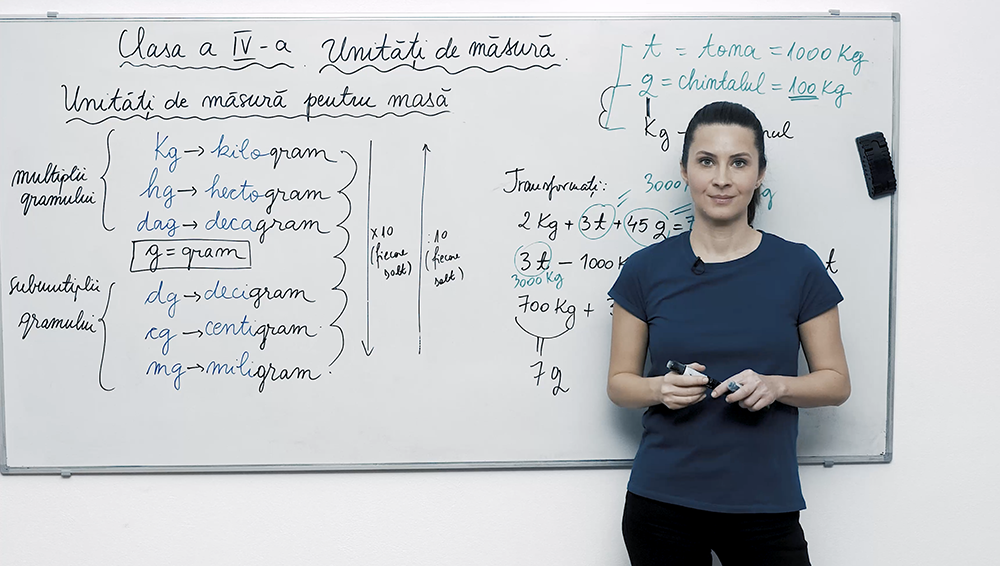 Clasa a IV-a Unități de măsură.
Unități de măsură pentru masă
multiplii
gramului
Kg → kilogram
hg → hectogram
dag → decagram
g = gram
submutiplii
gramului
dg → decigram
cg → centigram
mg → miligram
x10
(fiecare
salt)
: 10
(fiecare
salt)
t = tona = 1000 Kg
q = chintalul = 100 Kg
Kg
Transformați:
2 Kg + 3 t + 45 q =
3 t - 1000 t
3000 Kg
700 Kg +
7 q